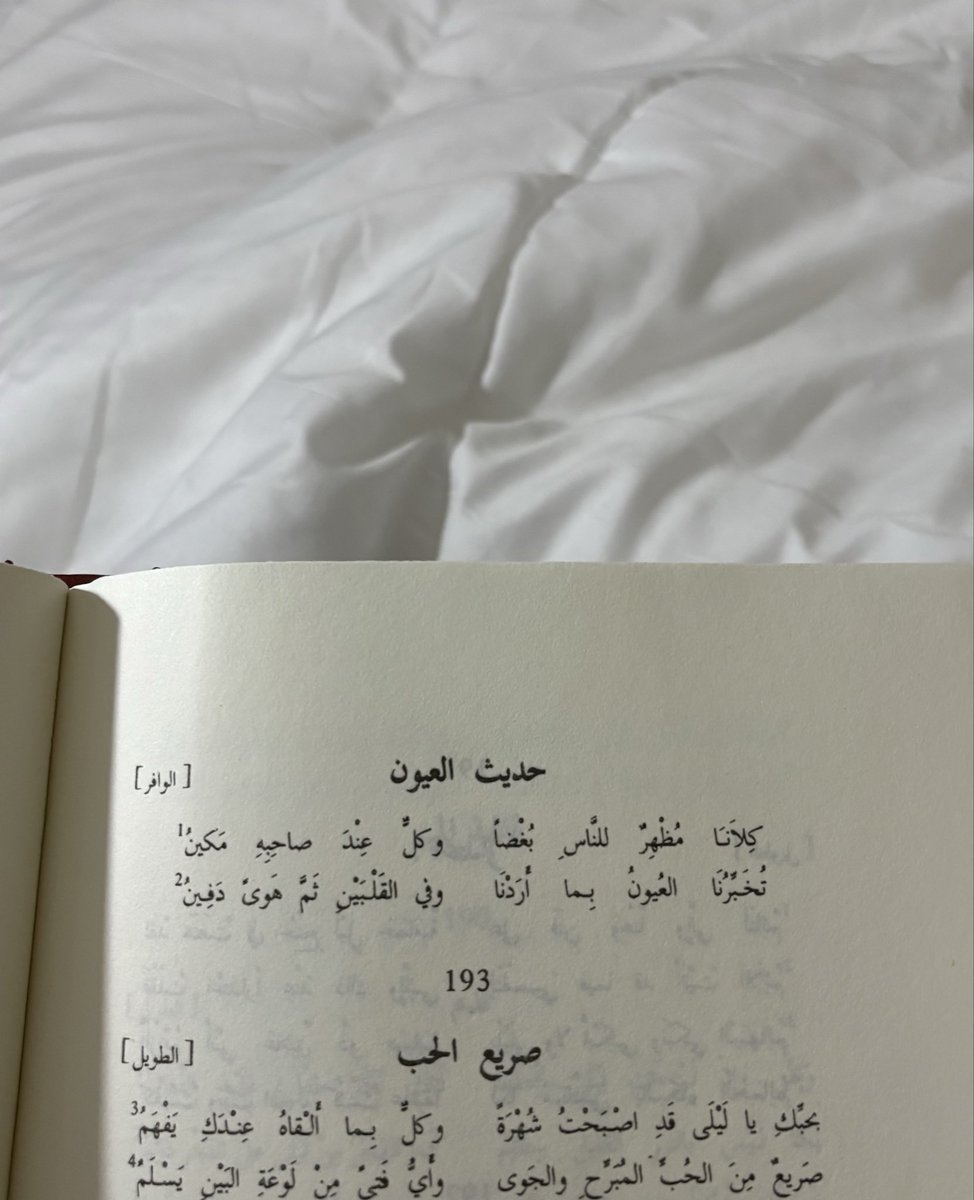 حديث العيون [الوافر]
كِلاَنَا مُظْهِرٌ للنَّاسِ بُغْضاً وكلٌّ عِنْدَ صاحِبِهِ مَكينُ1
تُخَبِّرُنَا العُيونُ بِما أَرَدْنَا وفي القَلْبَيْنِ ثَمَّ هَوىً دَفِينُ2
193
صريع الحب [الطويل]
بحبِّكِ يا لَيْلَى قَدِ اصْبَحْتُ شُهْرَةً وكلٌّ بِما أَلْقاهُ عِنْدَكِ يَفْهَمُ3
صَريعٌ مِنَ الحُبِّ المُبَرِّحِ والجَوى وأَيُّ فَتىً مِنْ لَوْعَةِ البَيْنِ يَسْلَمُ4